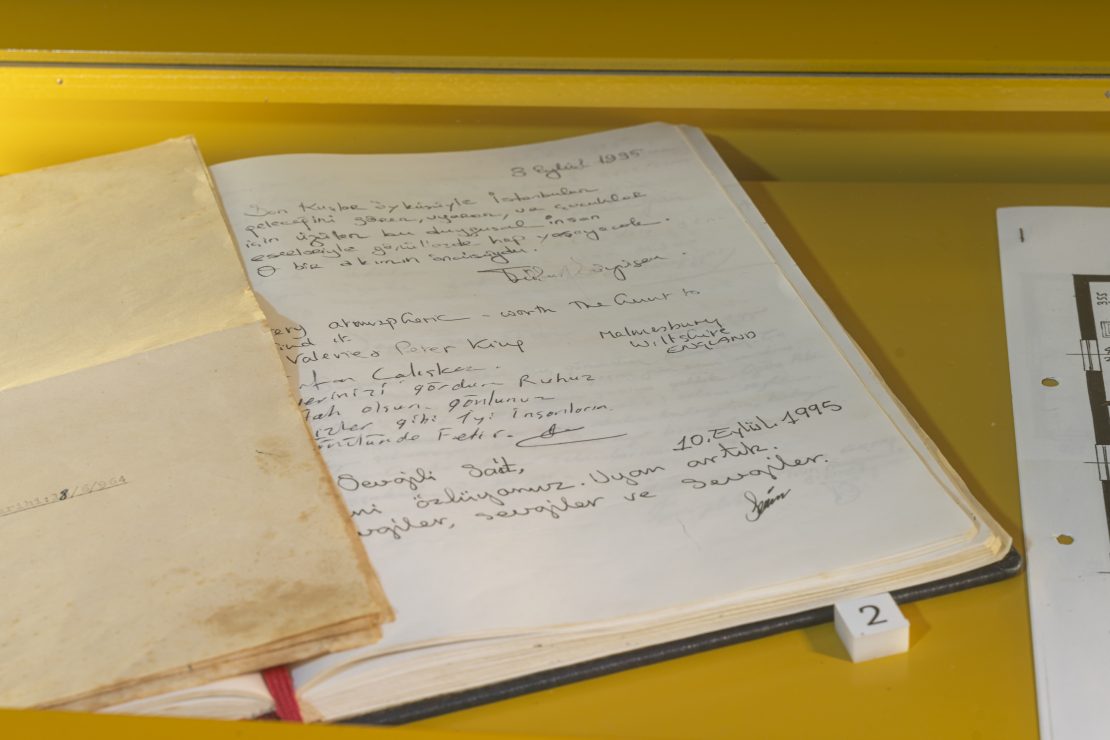 8 Eylül 1995
Son Kuşlar öyküsüyle İstanbulun
geleceğini gören, uyaran, ve çocuklar
için üzülen bu duygusal insan
eserleriyle gönüllerde hep yaşayacak.
O bir akımın öncüsüydü.
ery atmospheric - worth the hunt to
ind it
Valerie & Peter King
Malmesbury
Wiltshire
ENGLAND
Çalışkan.
erinizi gördüm Ruhuz
olsun. gönlünüz
izler gibi İyi İnsanların
Fetir.
10.Eylül.1995
Sevgili Sait,
ni özlüyoruz. Uyan artık.
vgiler, sevgiler ve sevgiler.
2
8/5/964
355